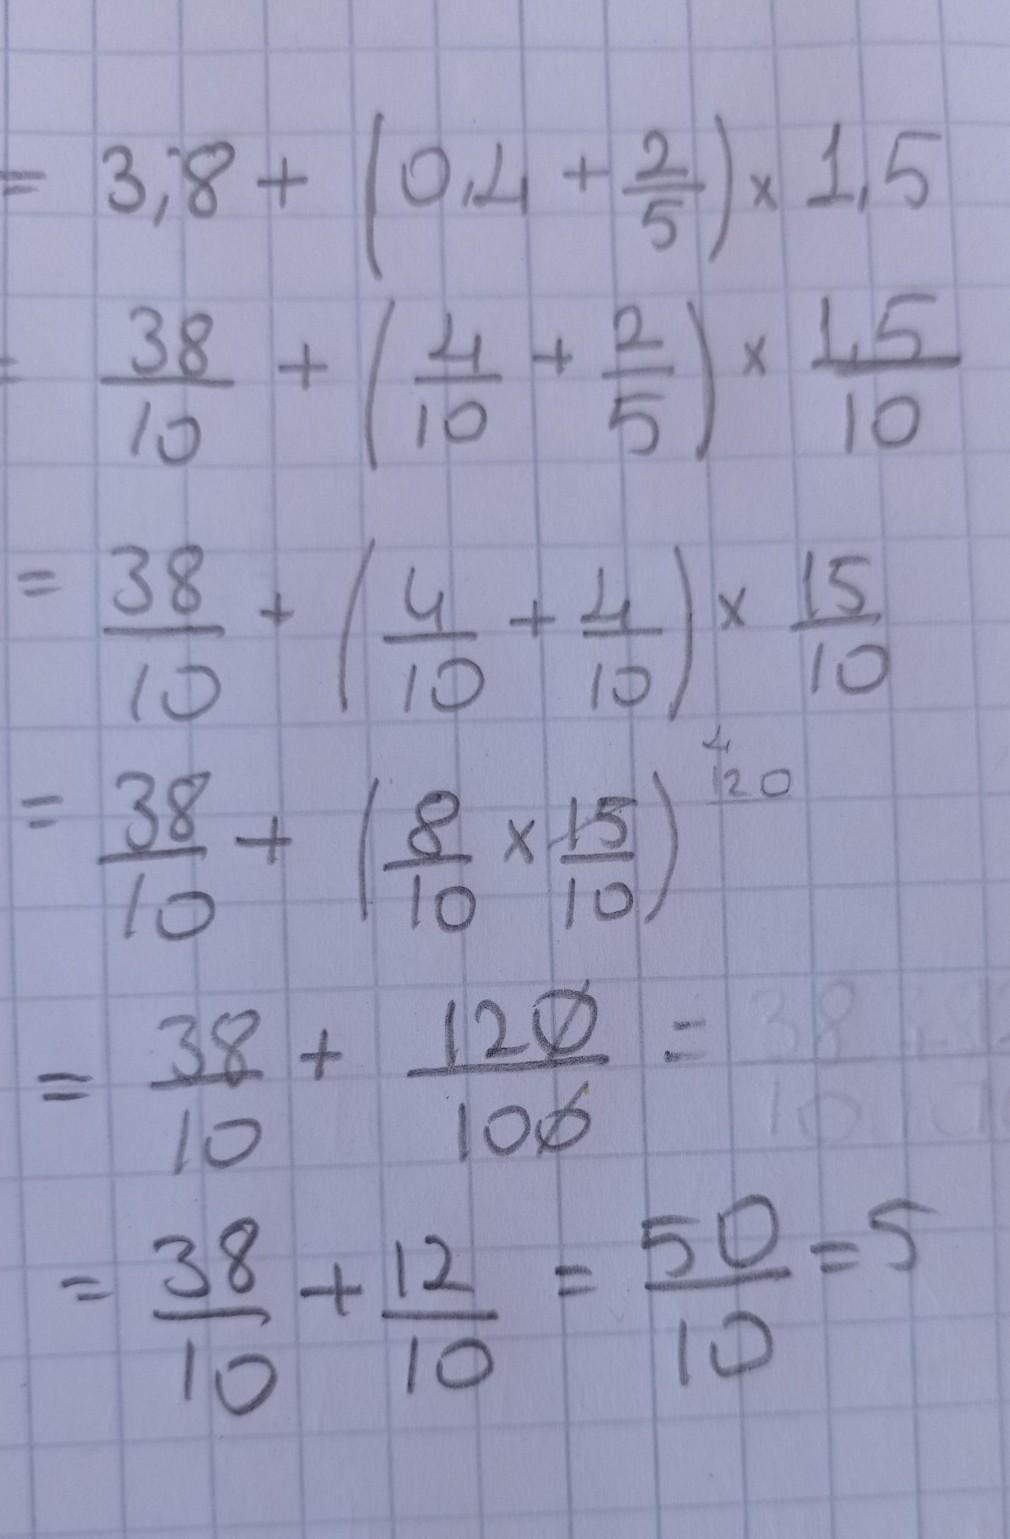 = 3,8 + (0,4 + 2/5) × 1,5
= 38/10 + (4/10 + 2/5) × 15/10
= 38/10 + (4/10 + 4/10) × 15/10
4
120
= 38/10 + (8/10 × 15/10)
= 38/10 + 120/100 =
= 38/10 + 12/10 = 50/10 = 5